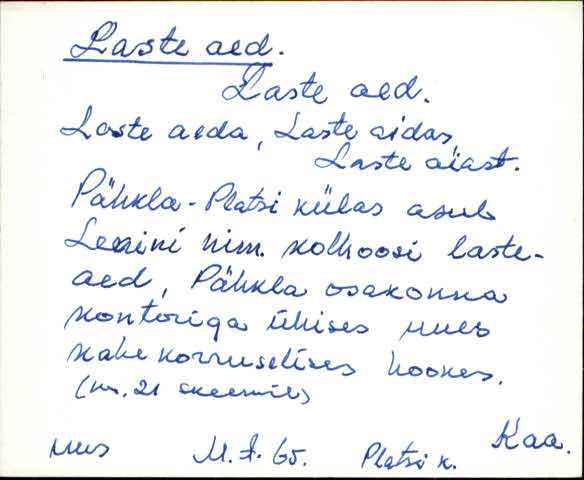 Laste aed.
Laste aed.
Laste aeda, Laste aidas,
Laste aiast.
Pähkla-Platsi külas asub
Leenini nim. kolhoosi laste-
aed, Pähkla osakonna
kontoriga ühises uues
kahekorruselises hoones.
(nr. 21 skeemil)
Kaa.
uus M. J. 65. Platsi k.